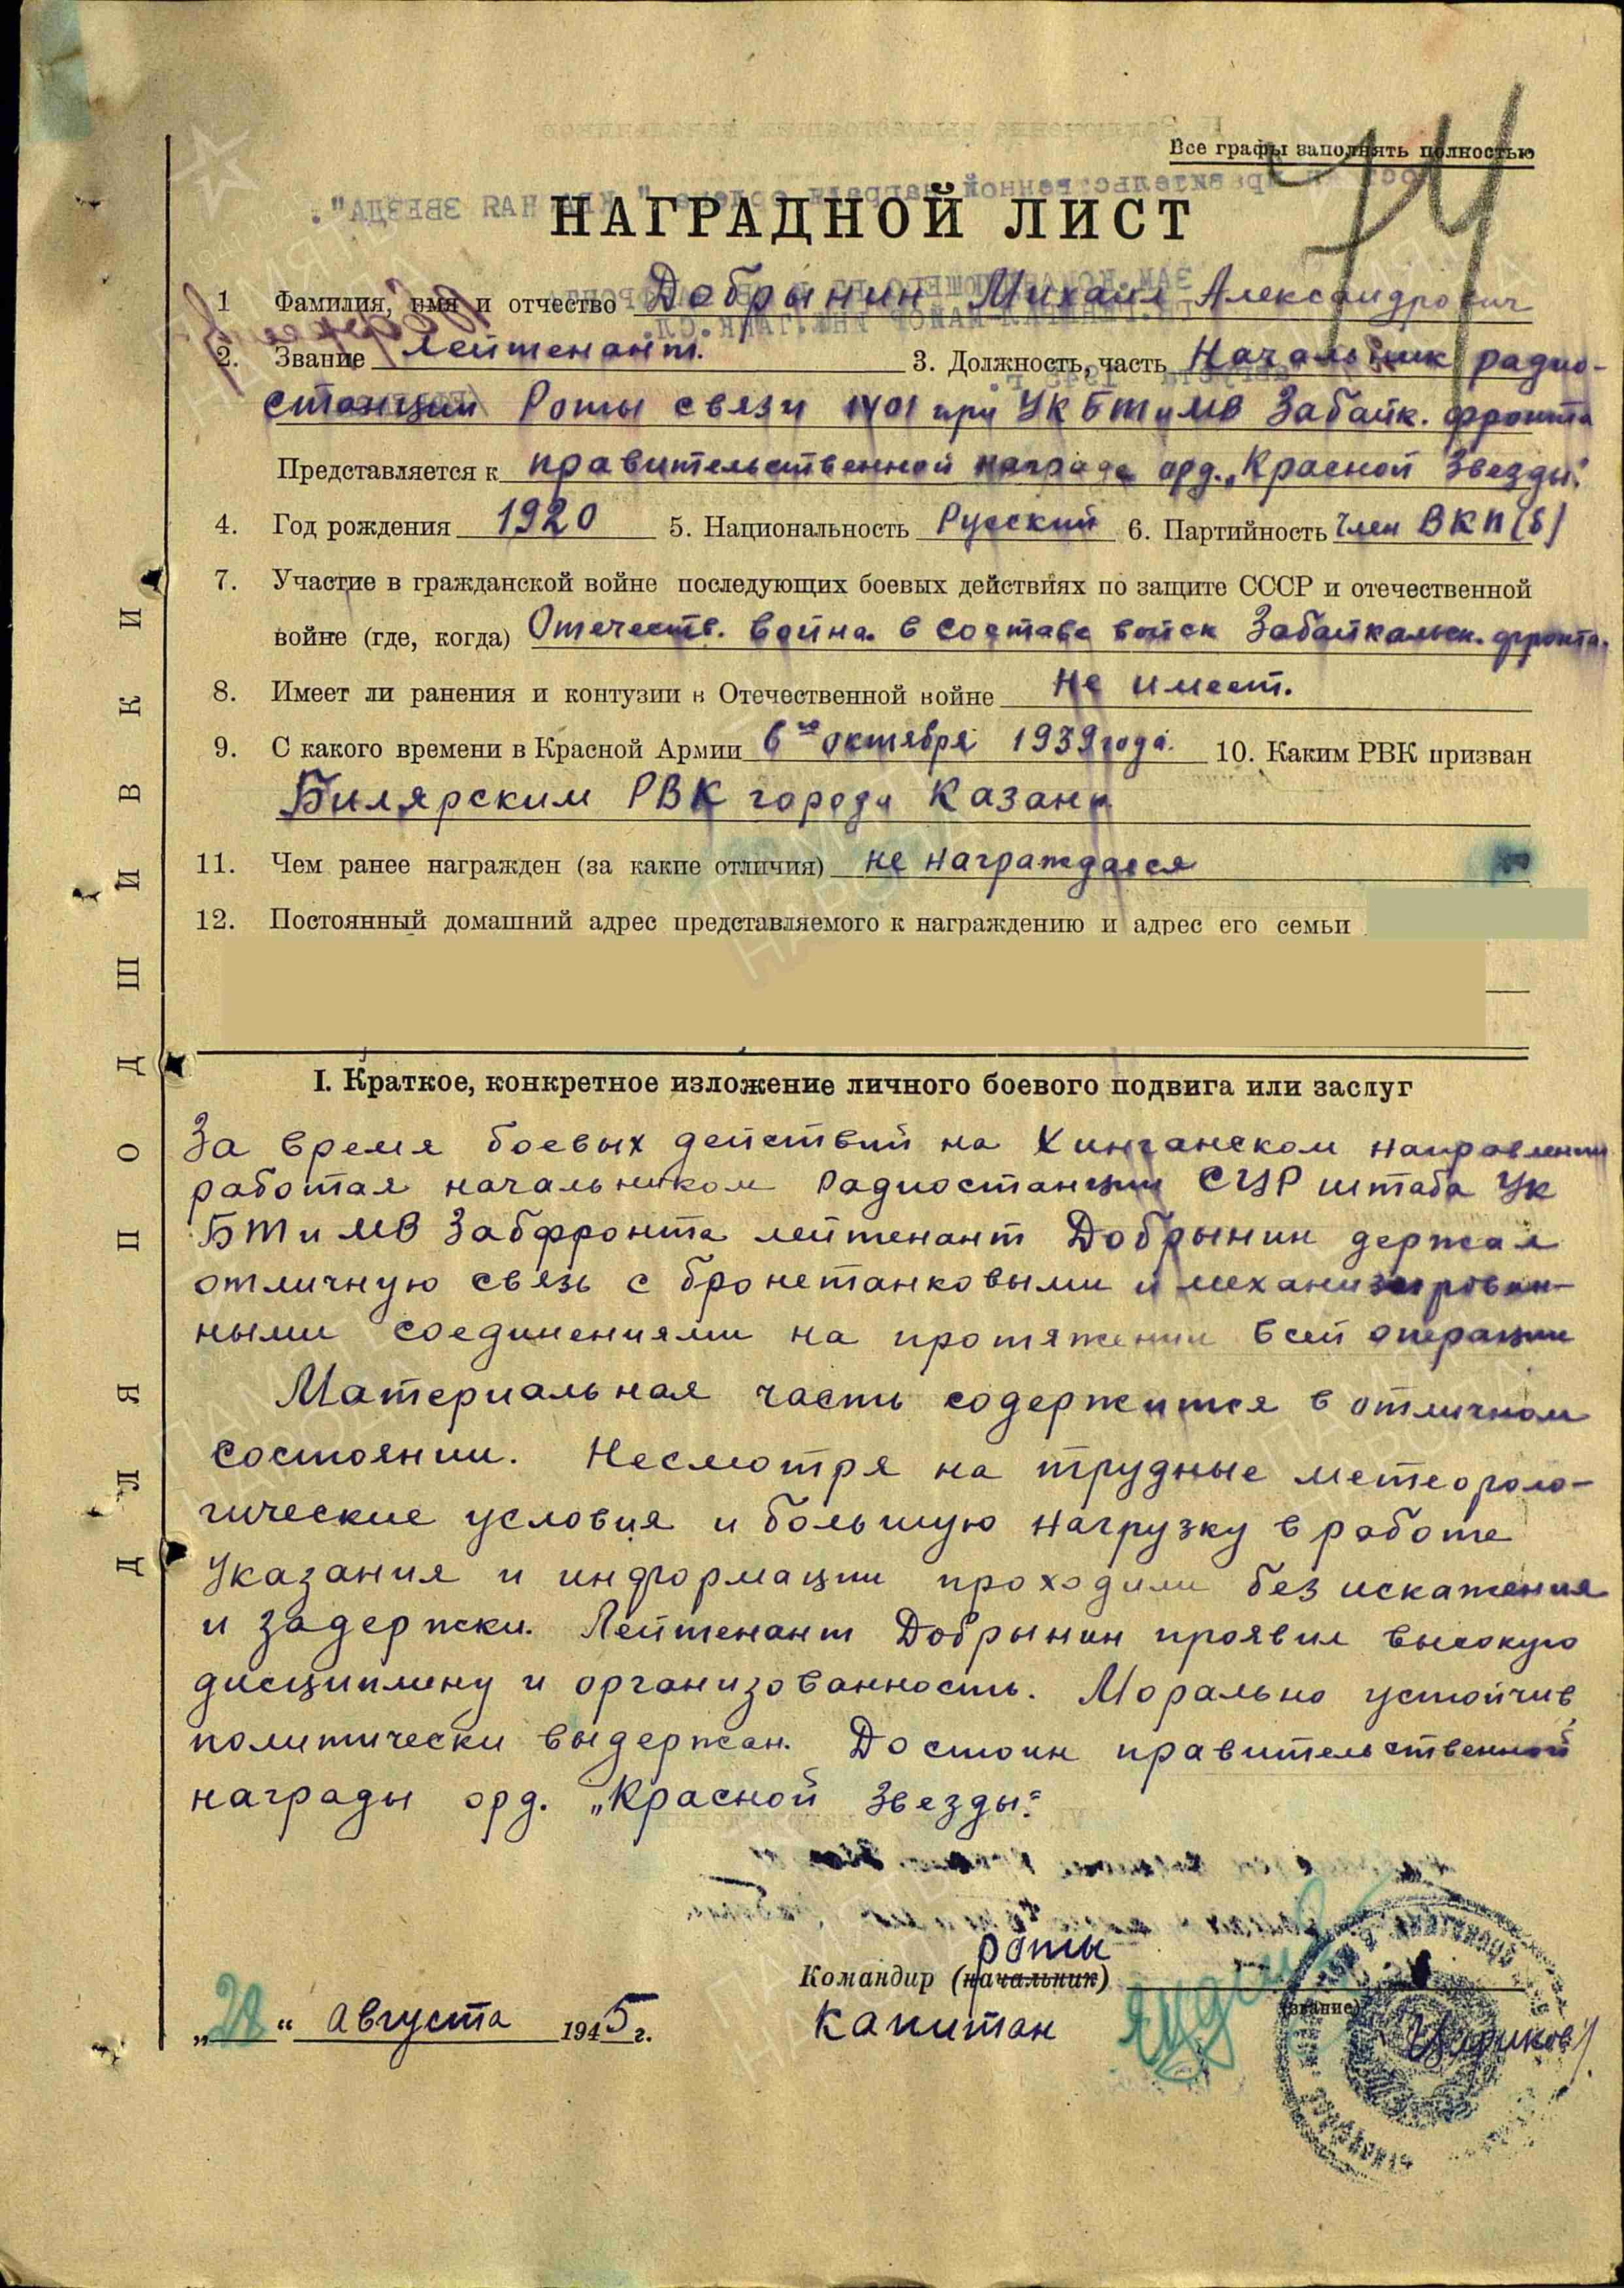 Все графы заполнять полностью
НАГРАДНОЙ ЛИСТ
1 Фамилия, имя и отчество Добрынин Михаил Александрович
2. Звание лейтенант. 3. Должность, часть Начальник радио-
станции Роты связи 1401 при УК БТ и МВ Забайк. фронта
Представляется к правительственной награде орд. „Красной Звезды".
4. Год рождения 1920 5. Национальность Русский 6. Партийность член ВКП(б)
7. Участие в гражданской войне последующих боевых действиях по защите СССР и отечественной
войне (где, когда) Отечеств. война в составе войск Забайкальск. фронта.
8. Имеет ли ранения и контузии в Отечественной войне Не имеет.
9. С какого времени в Красной Армии 6го октября 1939 года. 10. Каким РВК призван
Билярским РВК города Казани
11. Чем ранее награжден (за какие отличия) не награждался
12. Постоянный домашний адрес представляемого к награждению и адрес его семьи
I. Краткое, конкретное изложение личного боевого подвига или заслуг
За время боевых действий на Хинганском направлении
работая начальником радиостанции СЦР штаба УК
БТ и МВ Забфронта лейтенант Добрынин держал
отличную связь с бронетанковыми и механизирован-
ными соединениями на протяжении всей операции
Материальная часть содержится в отличном
состоянии. Несмотря на трудные метеороло-
гические условия и большую нагрузку в работе
указания и информации проходили без искажения
и задержки. Лейтенант Добрынин проявил высокую
дисциплину и организованность. Морально устойчив,
политически выдержан. Достоин правительственной
награды орд. „Красной Звезды".
роты
Командир (начальник)
(звание)
„28" августа 1945 г. капитан
ДЛЯ ПОДШИВКИ